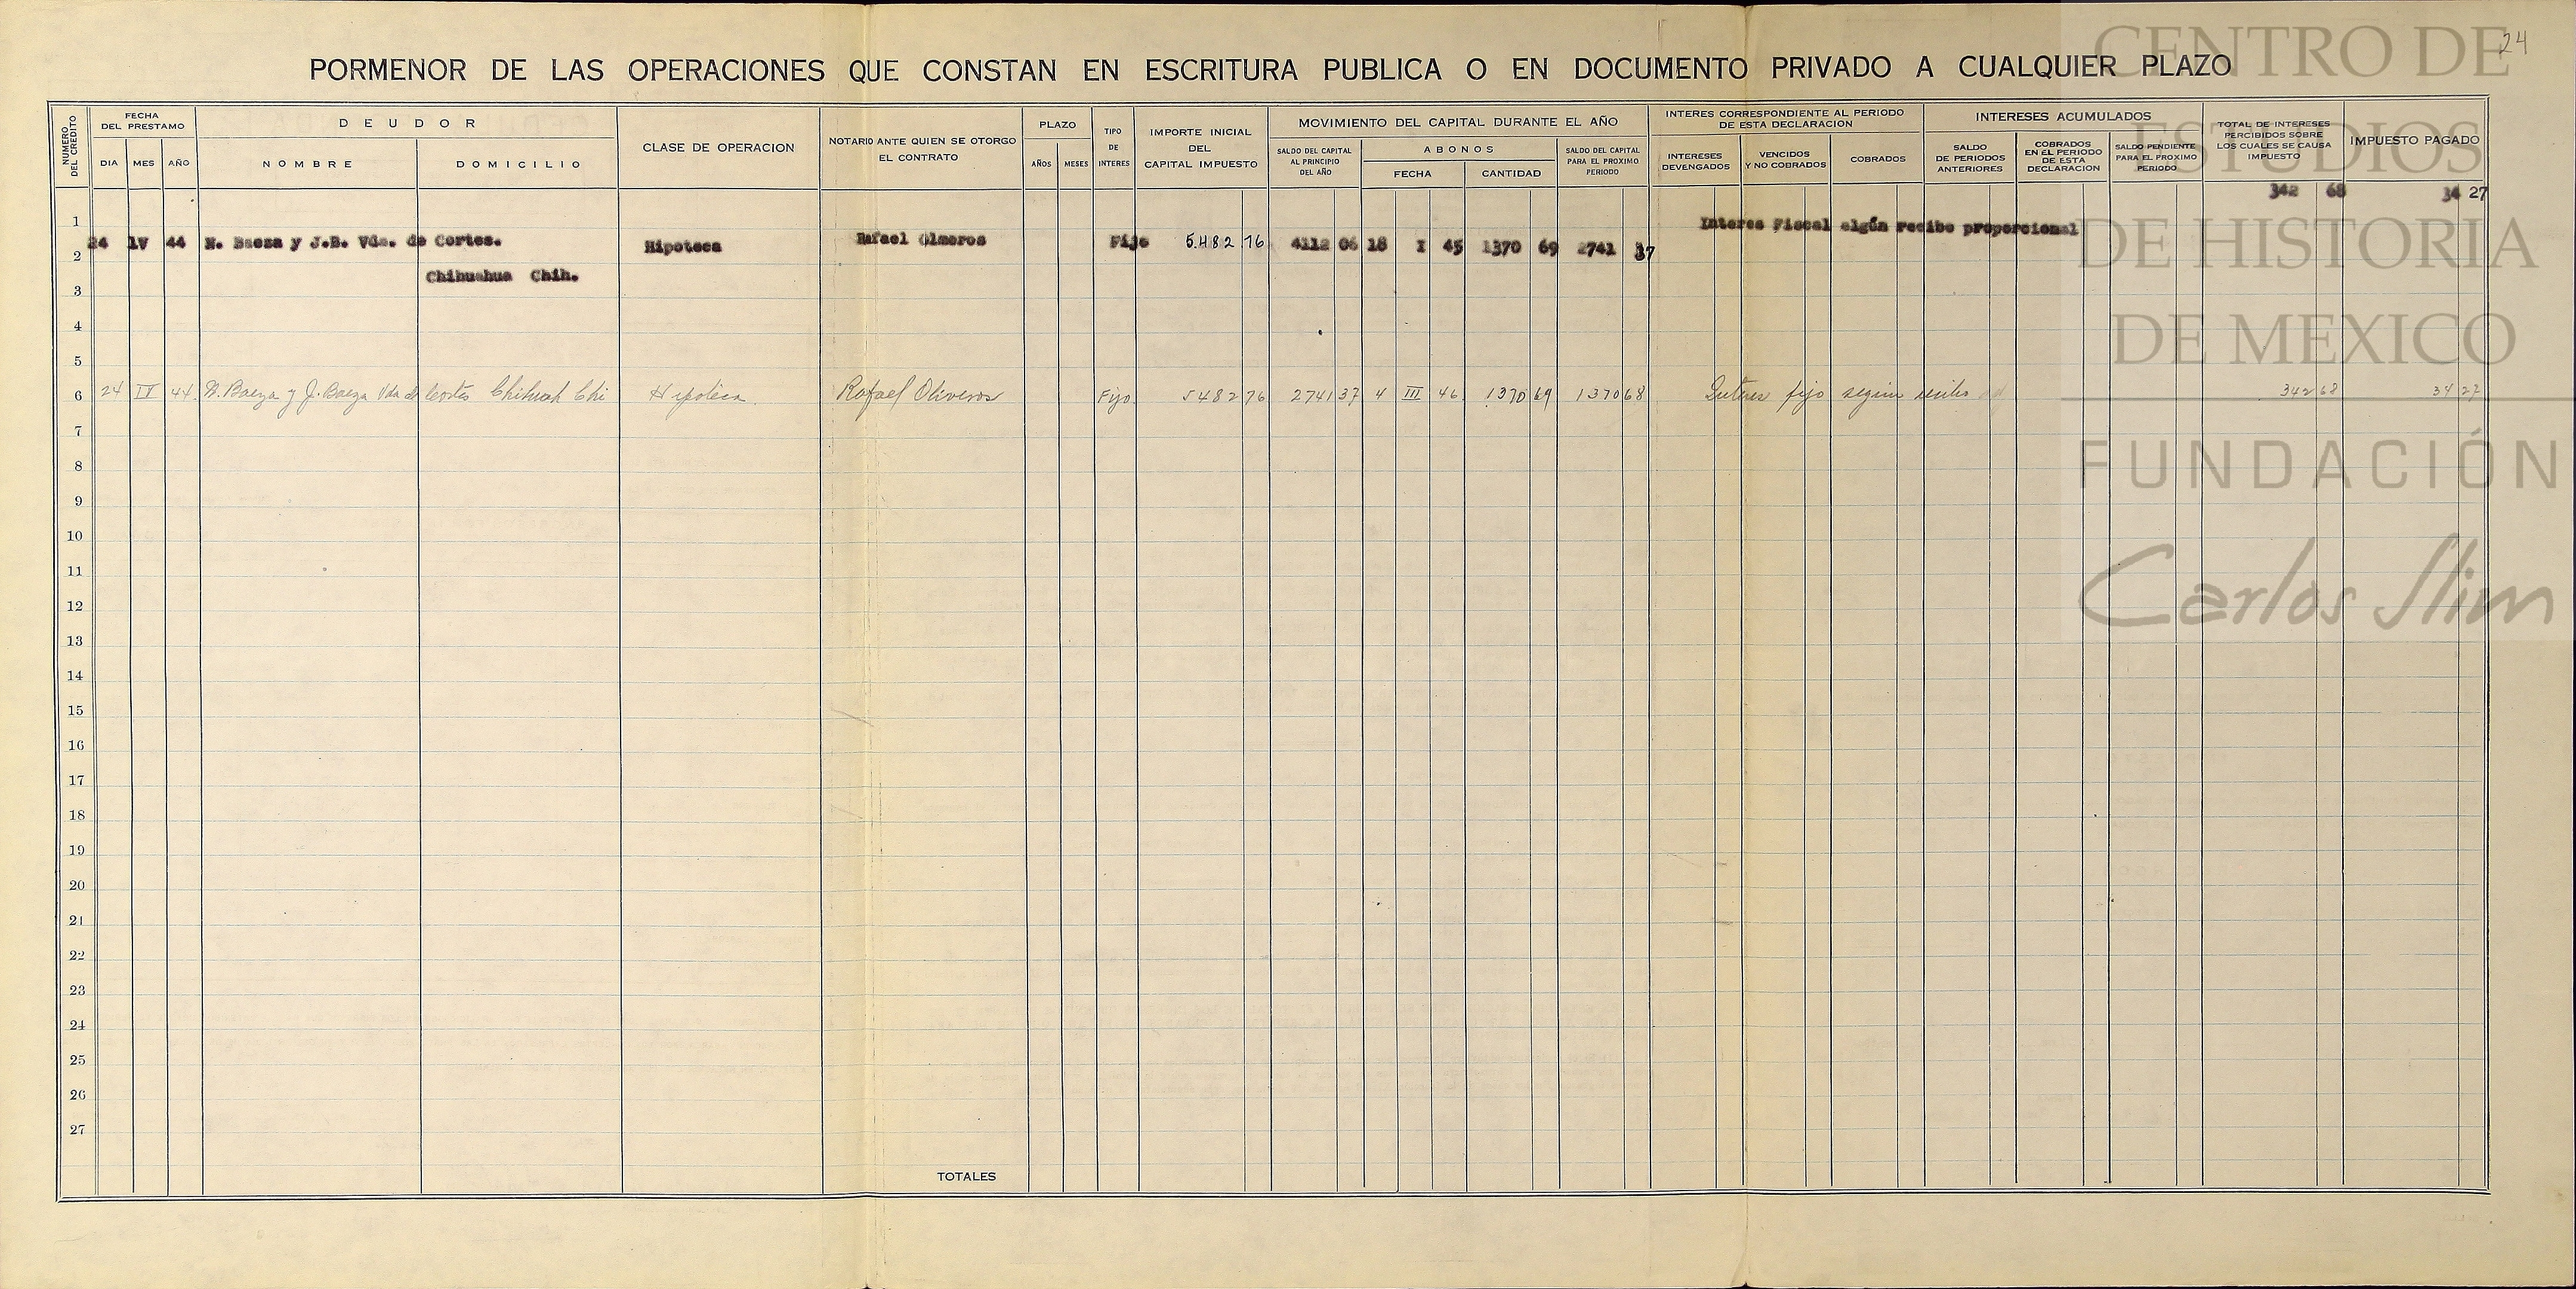 24
PORMENOR DE LAS OPERACIONES QUE CONSTAN EN ESCRITURA PUBLICA O EN DOCUMENTO PRIVADO A CUALQUIER PLAZO
NUMERO DEL CREDITO
FECHA DEL PRESTAMO
DIA MES AÑO
DEUDOR
NOMBRE DOMICILIO
CLASE DE OPERACION
NOTARIO ANTE QUIEN SE OTORGO EL CONTRATO
PLAZO
AÑOS MESES
TIPO DE INTERES
IMPORTE INICIAL DEL CAPITAL IMPUESTO
MOVIMIENTO DEL CAPITAL DURANTE EL AÑO
SALDO DEL CAPITAL AL PRINCIPIO DEL AÑO
ABONOS
FECHA CANTIDAD
SALDO DEL CAPITAL PARA EL PROXIMO PERIODO
INTERES CORRESPONDIENTE AL PERIODO DE ESTA DECLARACION
INTERESES DEVENGADOS
VENCIDOS Y NO COBRADOS
COBRADOS
INTERESES ACUMULADOS
SALDO DE PERIODOS ANTERIORES
COBRADOS EN EL PERIODO DE ESTA DECLARACION
SALDO PENDIENTE PARA EL PROXIMO PERIODO
TOTAL DE INTERESES PERCIBIDOS SOBRE LOS CUALES SE CAUSA IMPUESTO
IMPUESTO PAGADO
342 68 34 27
1
24 IV 44 N. Baeza y J.B. Vda. de Cortes. Hipoteca Rafael Fijo 5.482 76 4112 06 18 I 45 1370 69 2741 37 Interes Fiscal algún recibo proporcional
2
Chihuahua Chih.
3
4
5
6 24 IV 44. N. Baeza y J. Baeza Vda de Cortés Chihuah Chi Hipoteca Rafael Oliveros Fijo 5482 76 2741 37 4 III 46 1370 69 1370 68 Interes fijo según recibo 342 68 34 27
7
8
9
10
11
12
13
14
15
16
17
18
19
20
21
22
23
24
25
26
27
TOTALES
CENTRO DE
ESTUDIOS
DE HISTORIA
DE MEXICO
FUNDACIÓN
Carlos Slim